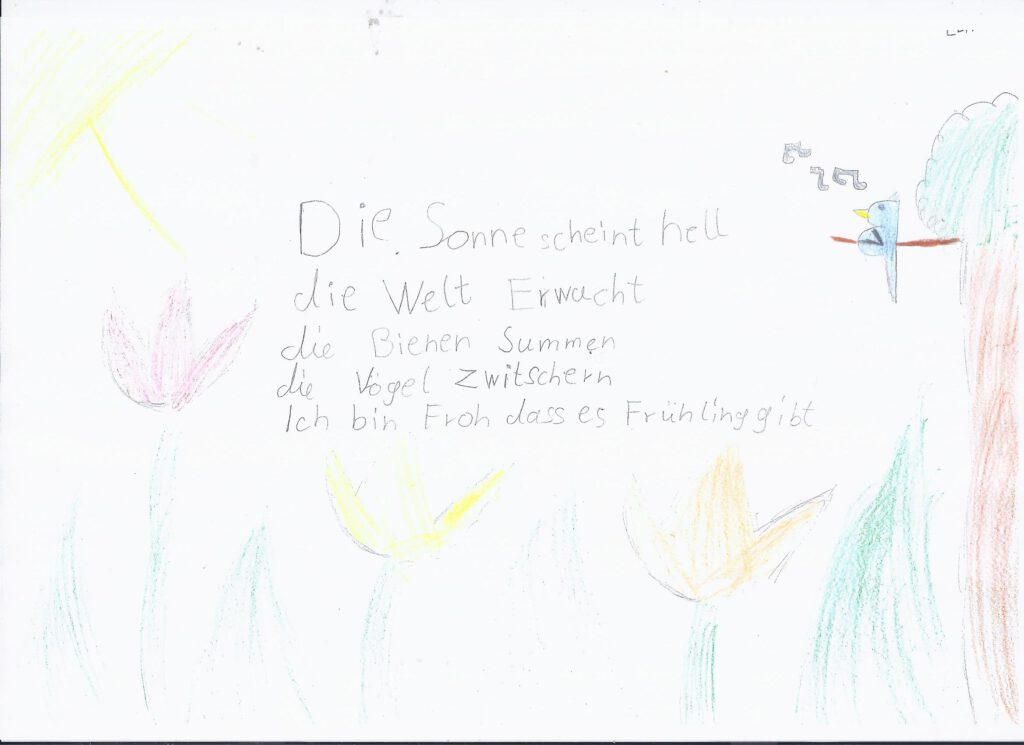 Die Sonne scheint hell
die Welt Erwacht
die Bienen Summen
die Vögel zwitschern
Ich bin Froh dass es Frühling gibt